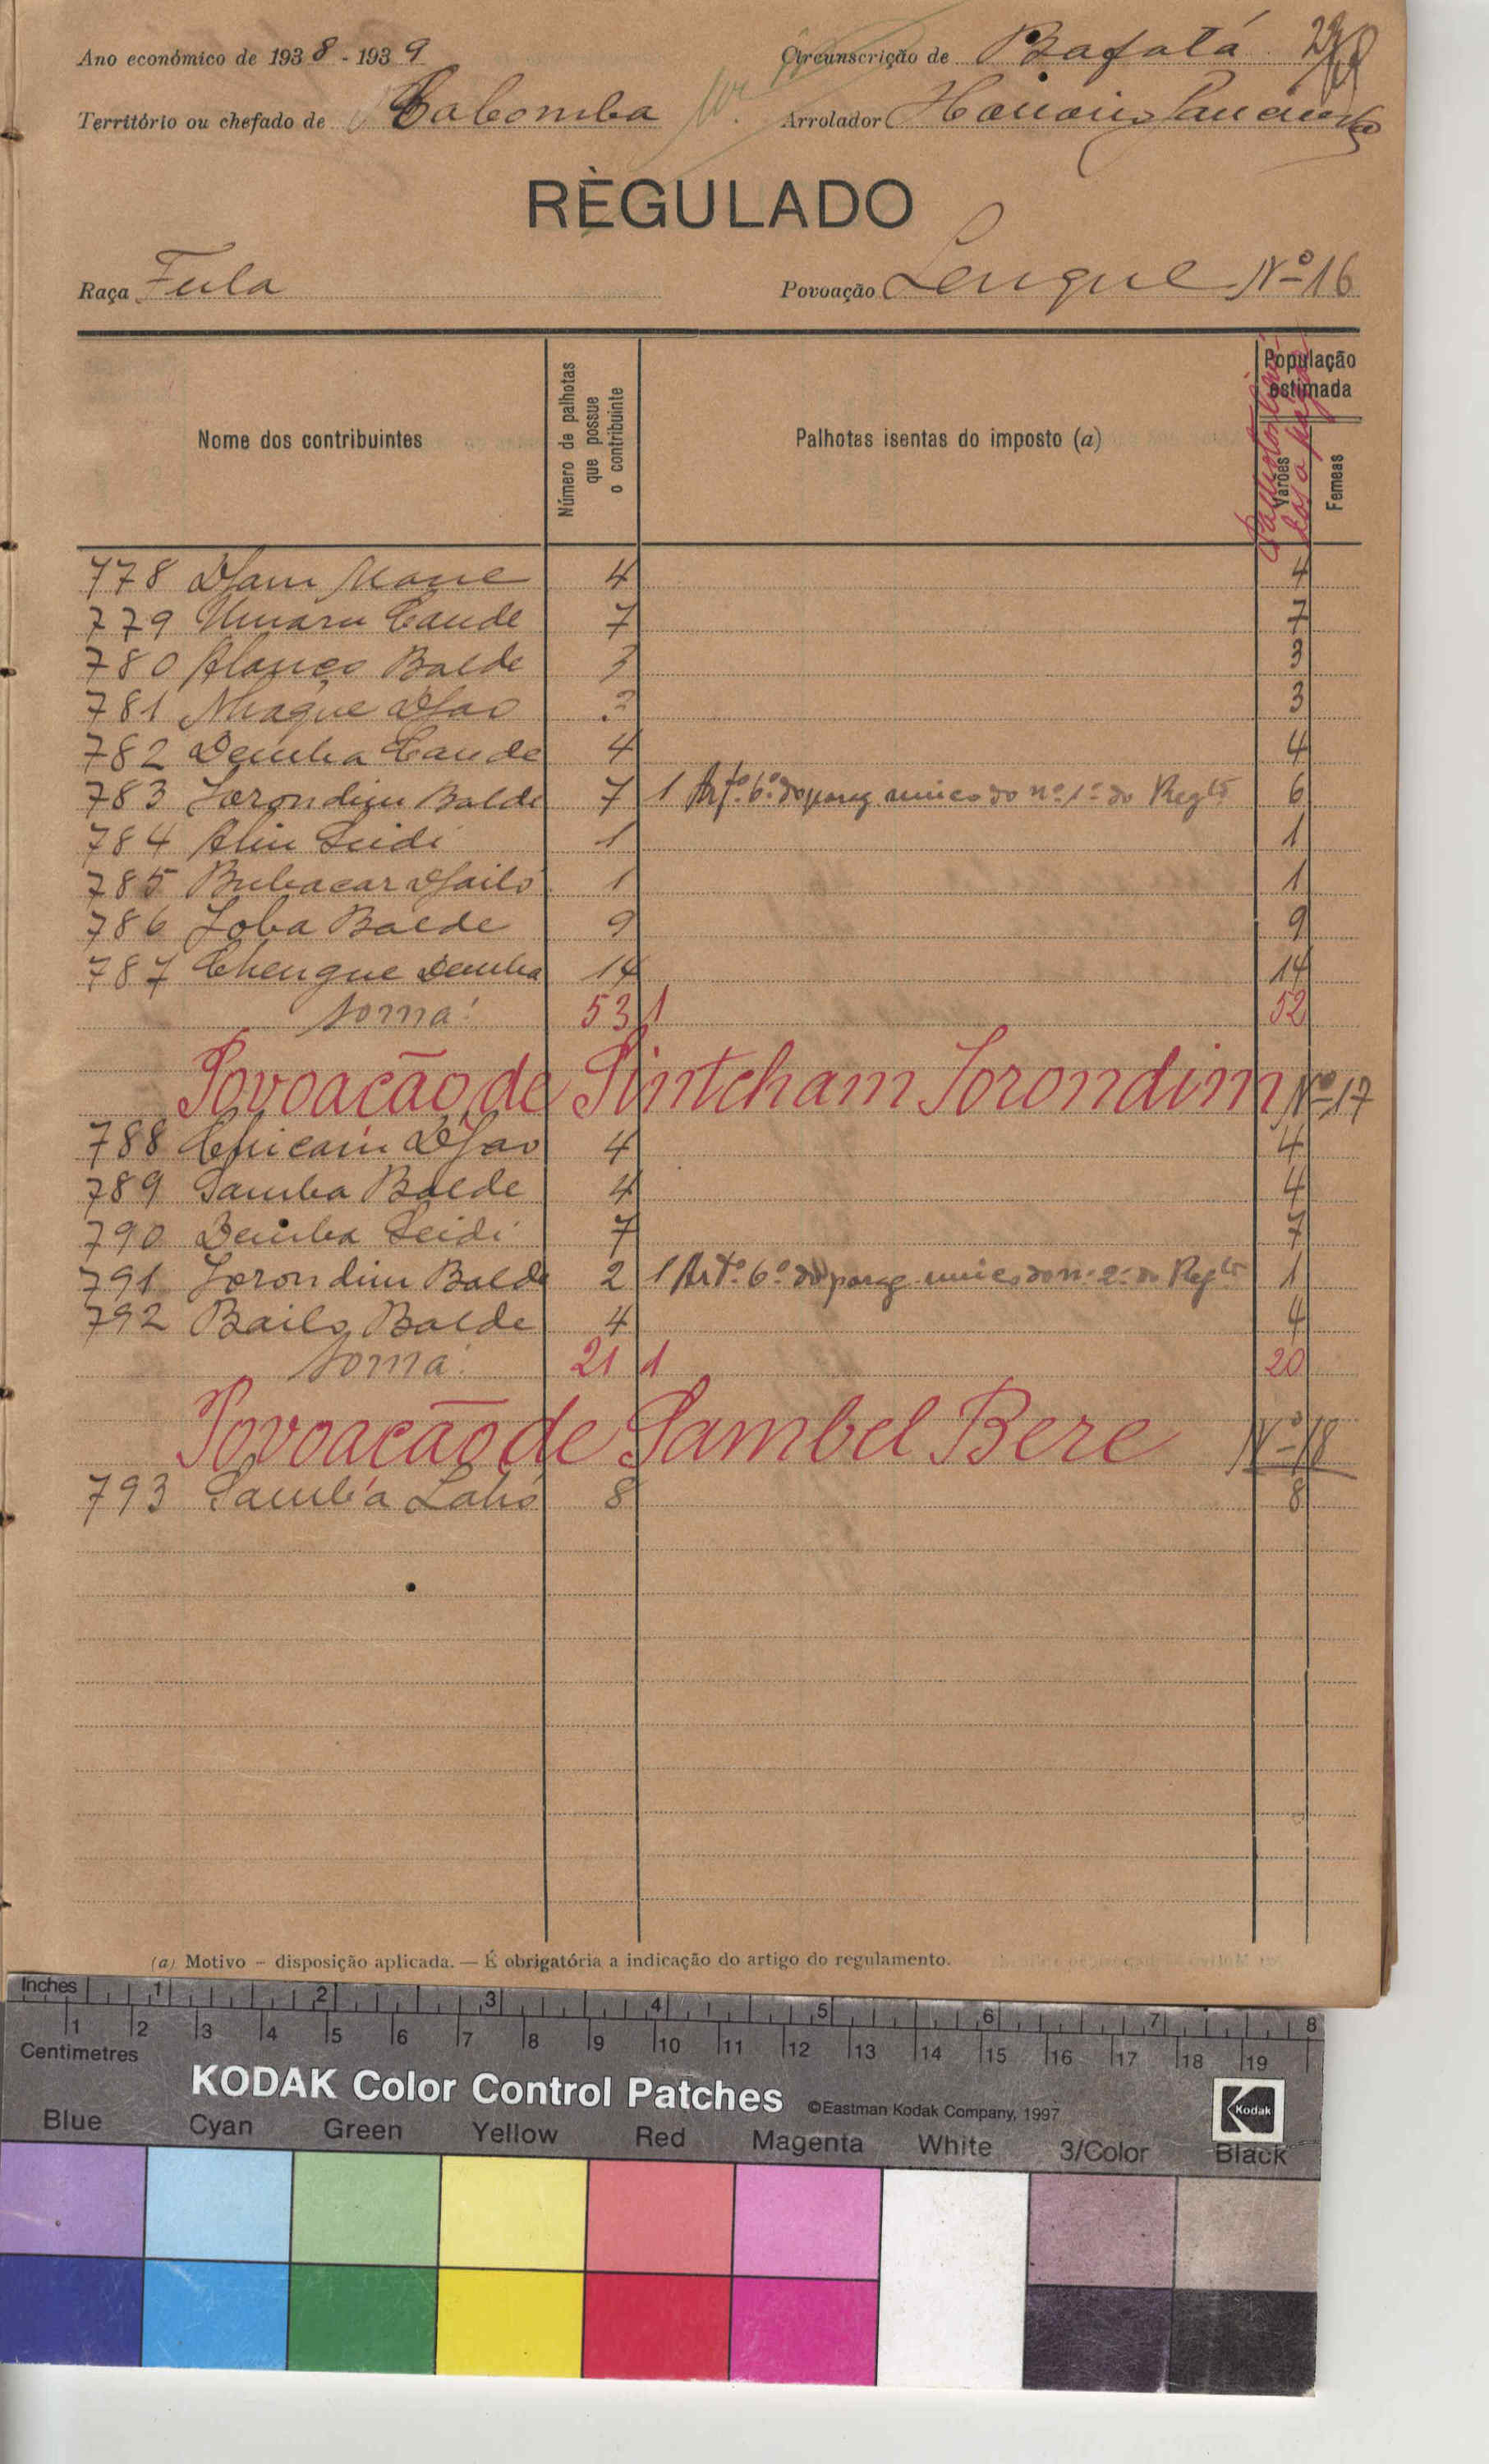 Ano económico de 1938 - 1939
Circunscrição de Bafatá
Território ou chefado de Cabomba
Arrolador
RÈGULADO
Raça Fula
Povoação Lengue Nº 16
Nome dos contribuintes
Número de palhotas que possue o contribuinte
Palhotas isentas do imposto (a)
População estimada
Varões
Femeas
778 Djam Mane 4 4
779 Umaru Cande 7 7
780 Balde 3 3
781 Djao 3 3
782 Demba Cande 4 4
783 Sorondim Balde 7 1 Artº. 6º. do parag. unico do nº. 1º do Regtº 6
784 Aliu Seidi 1 1
785 Bubacar Djailó 1 1
786 Joba Balde 9 9
787 Chengue Demba 14 14
Soma: 53 1 52
Povoação de Sintcham Sorondim Nº 17
788 Djao 4 4
789 Samba Balde 4 4
790 Demba Seidi 7 7
791 Sorondim Balde 2 1 Artº. 6º do parag. unico do nº. 2º do Regtº 1
792 Bailo Balde 4 4
Soma: 21 1 20
Povoação de Sambel Bere Nº 18
793 Samba 8 8
(a) Motivo – disposição aplicada. — É obrigatória a indicação do artigo do regulamento.
Inches 1 2 3 4 5 6 7 8
1 2 3 4 5 6 7 8 9 10 11 12 13 14 15 16 17 18 19
Centimetres
KODAK Color Control Patches ©Eastman Kodak Company, 1997 Kodak
Blue Cyan Green Yellow Red Magenta White 3/Color Black